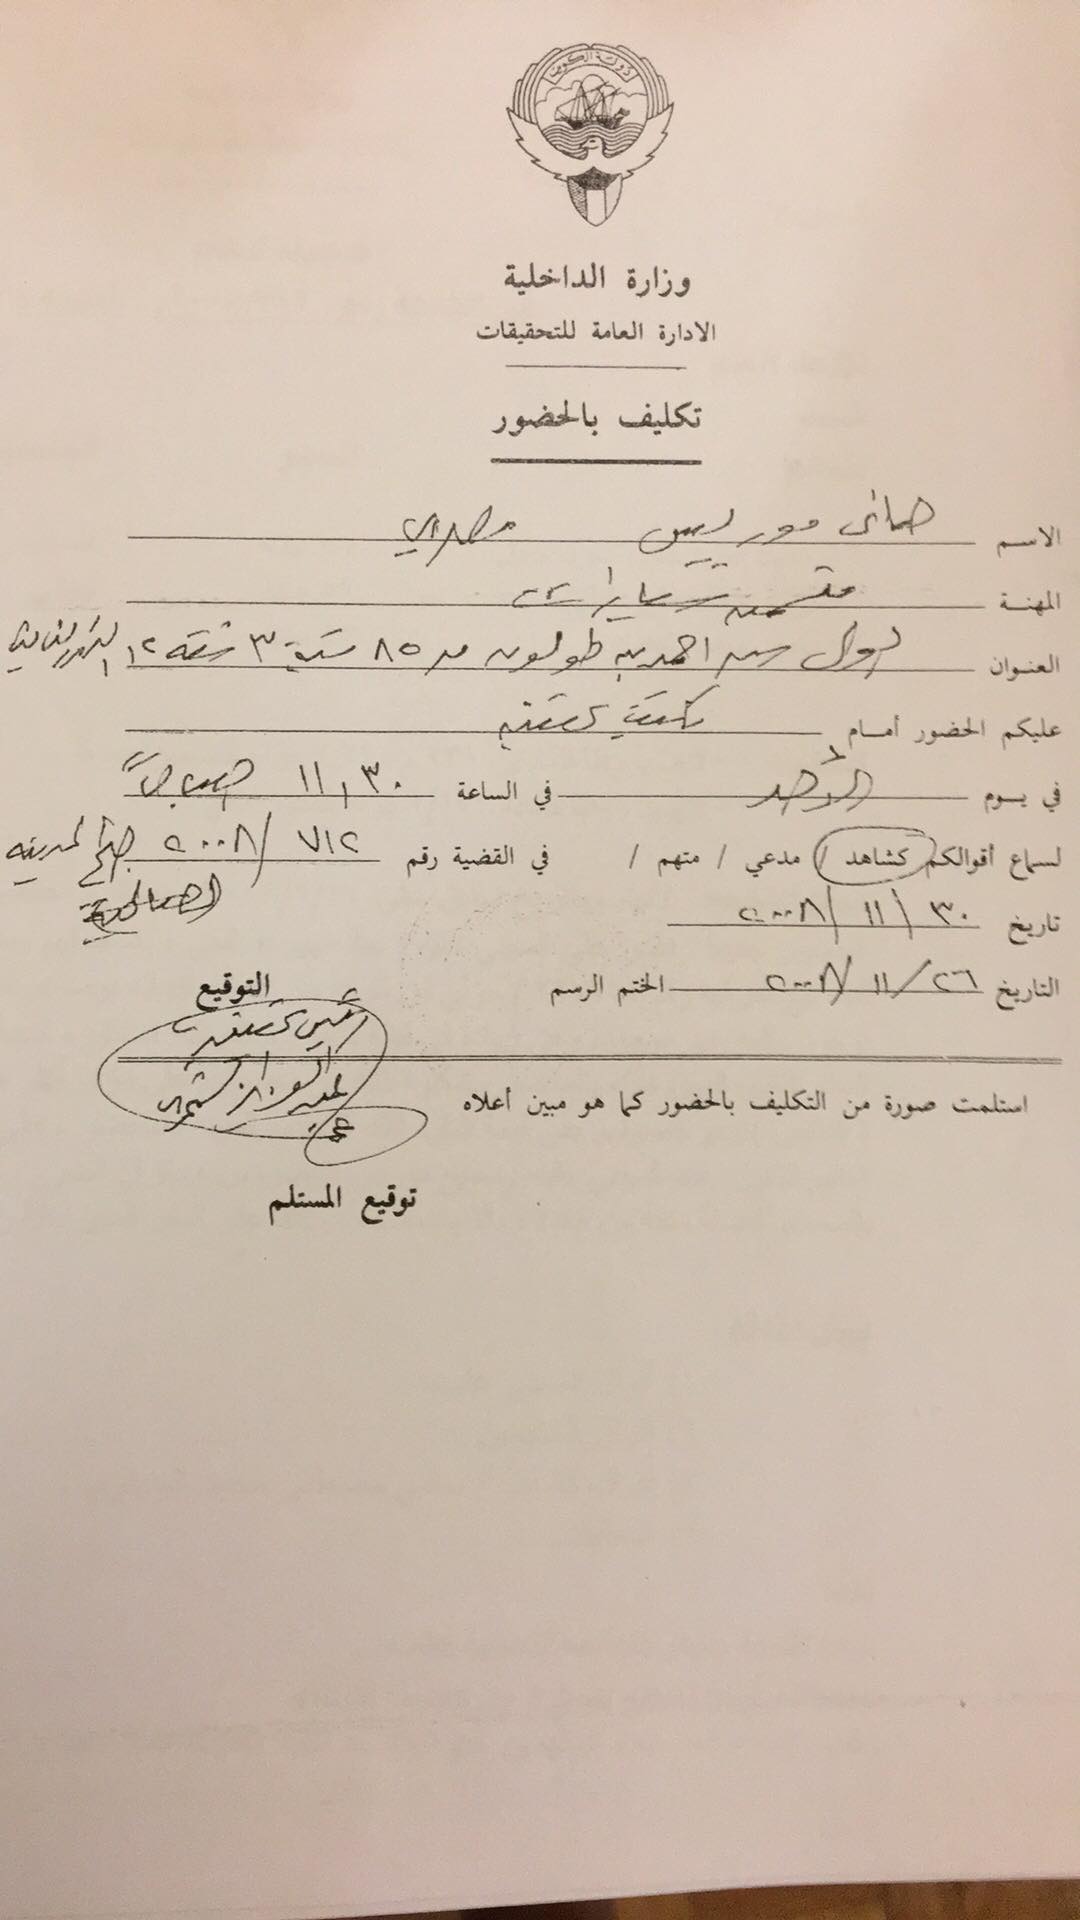 دولة الكويت
وزارة الداخلية
الادارة العامة للتحقيقات
تكليف بالحضور
الاسم هانى موريس مصري
المهنة سيارات
العنوان احمد بن طولون م ٨٥ ٣ شقة ١٢
عليكم الحضور أمام
في يوم الأحد في الساعة ١١,٣٠ صباحاً
لسماع أقوالكم كشاهد / مدعي / متهم / في القضية رقم ٧١٢ / ٢٠٠٨ المدينة
الصالحية
تاريخ ٣٠ / ١١ / ٢٠٠٨
التاريخ ٢٦ / ١١ / ٢٠٠٨ الختم الرسم
التوقيع
استلمت صورة من التكليف بالحضور كما هو مبين أعلاه
توقيع المستلم